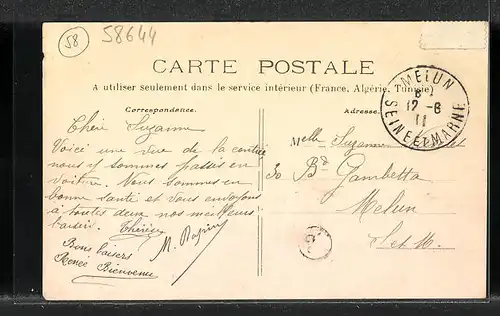 58
58644
CARTE POSTALE
A utiliser seulement dans le service intérieur (France, Algérie, Tunisie)
Correspondance.
Adresse.
MELUN
6
12-6
11
SEINE ET MARNE
Chère Suzanne
Voici une vue de la contrée
nous y sommes passés en
voiture. Nous sommes en
bonne santé et vous envoyons
à toutes deux nos meilleurs
baisers. Thérèse
Bons baisers
Renée Bienvenu
M.
Melle Suzanne
30 Bd Gambetta
Melun
S et M.